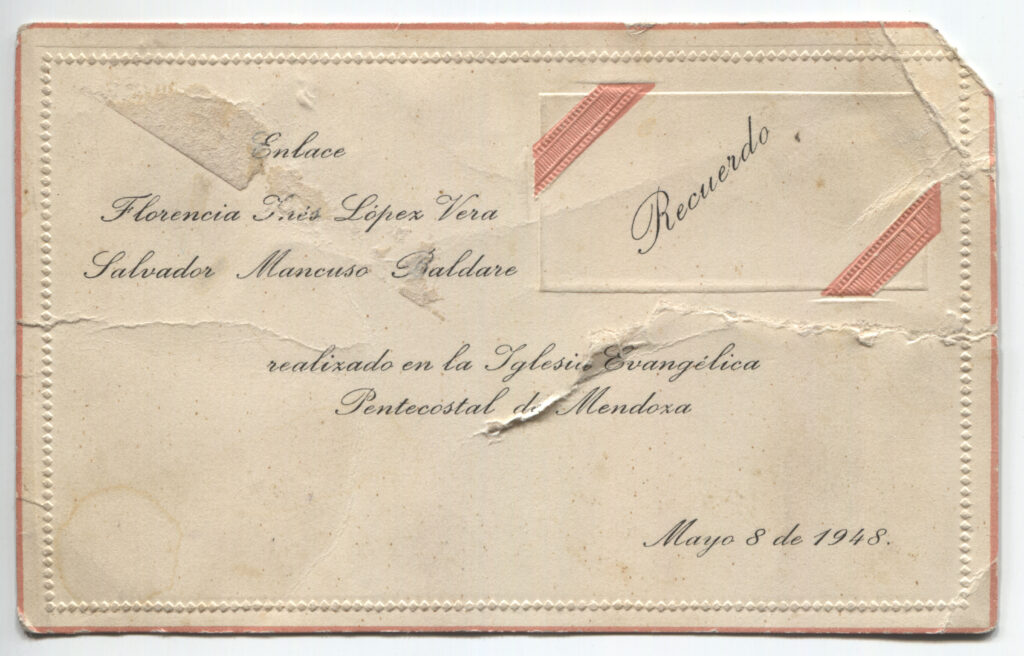 Enlace
Florencia Inés López Vera
Salvador Mancuso Baldare
Recuerdo
realizado en la Iglesia Evangélica
Pentecostal de Mendoza
Mayo 8 de 1948.